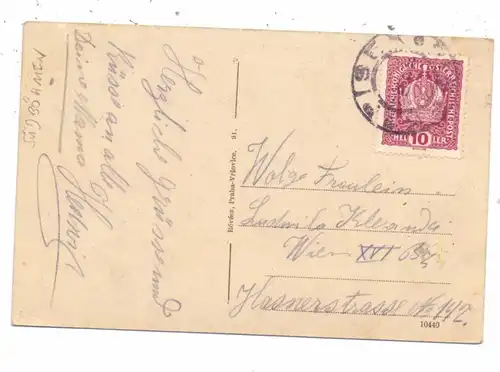 Herzliche Grüsse und
Küsse an alle
Deine Mama
Rörder, Praha-Vršovice. 91.
KAISERLICHE KÖNIGLICHE ÖSTERREICHISCHE POST
10
HELLER
Wolge Fräulein
Ludmila
Wien XVI
Hasnerstrasse No 142.
10440